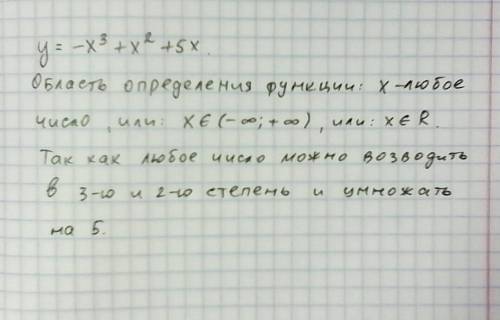 y = -x³ + x² + 5x.
Область определения функции: x - любое
число, или: x∈(-∞; +∞), или: x∈R.
Так как любое число можно возводить
в 3-ю и 2-ю степень и умножать
на 5.